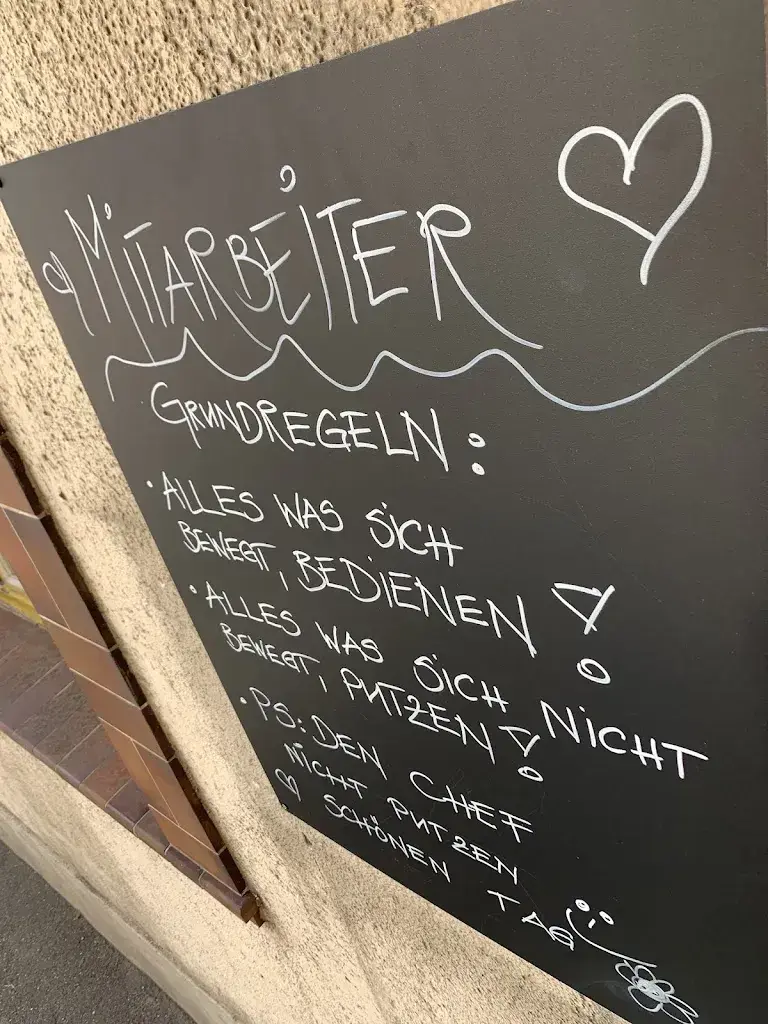 MITARBEITER
GRUNDREGELN:
· ALLES WAS SICH
BEWEGT, BEDIENEN!
· ALLES WAS SICH NICHT
BEWEGT, PUTZEN!
· PS: DEN CHEF
NICHT PUTZEN
SCHÖNEN TAG